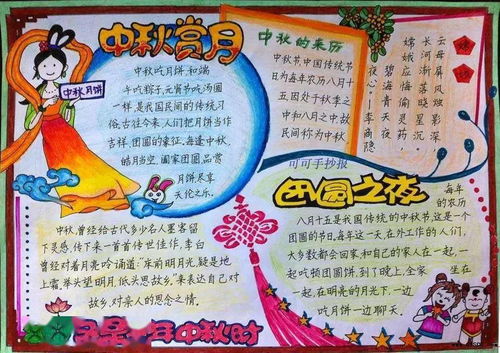 中秋赏月
中秋月饼
中秋吃月饼,和端
午吃粽子,元宵节吃汤圆
一样是我国民间的传统习
俗,古往今来,人们把月饼当作
吉祥,团圆的象征,每逢中秋,
皓月当空,阖家团圆,品赏
月饼尽享
天伦之乐。
中秋的来历
中秋节中国传统节
日为每年农历八月十
五,因处于秋季之
中和八月之中故
民间称为中秋
嫦娥
云母屏风烛影深
长河渐落晓星沉
嫦娥应悔偷灵药
碧海青天夜夜心
——李商隐
可可手抄报
团圆之夜
每年
的农历
八月十五是我国传统的中秋节,这是一个
团圆的节日。每年这一天,在外工作的人们,
大多数都会回家,和自己的家人在一起,一
起吃顿团圆饼,到了晚上,全家坐在
一起,在明亮的月光下,一边
吃月饼一边聊天。
中秋,曾经给古代多少名人墨客留
下灵感,传下来一首首传世佳作,李白
曾经对着月亮吟诵道:"床前明月光,疑是地
上霜,举头望明月,低头思故乡。"来表达自己对
故乡,对亲人的思念之情。
又是一年中秋时